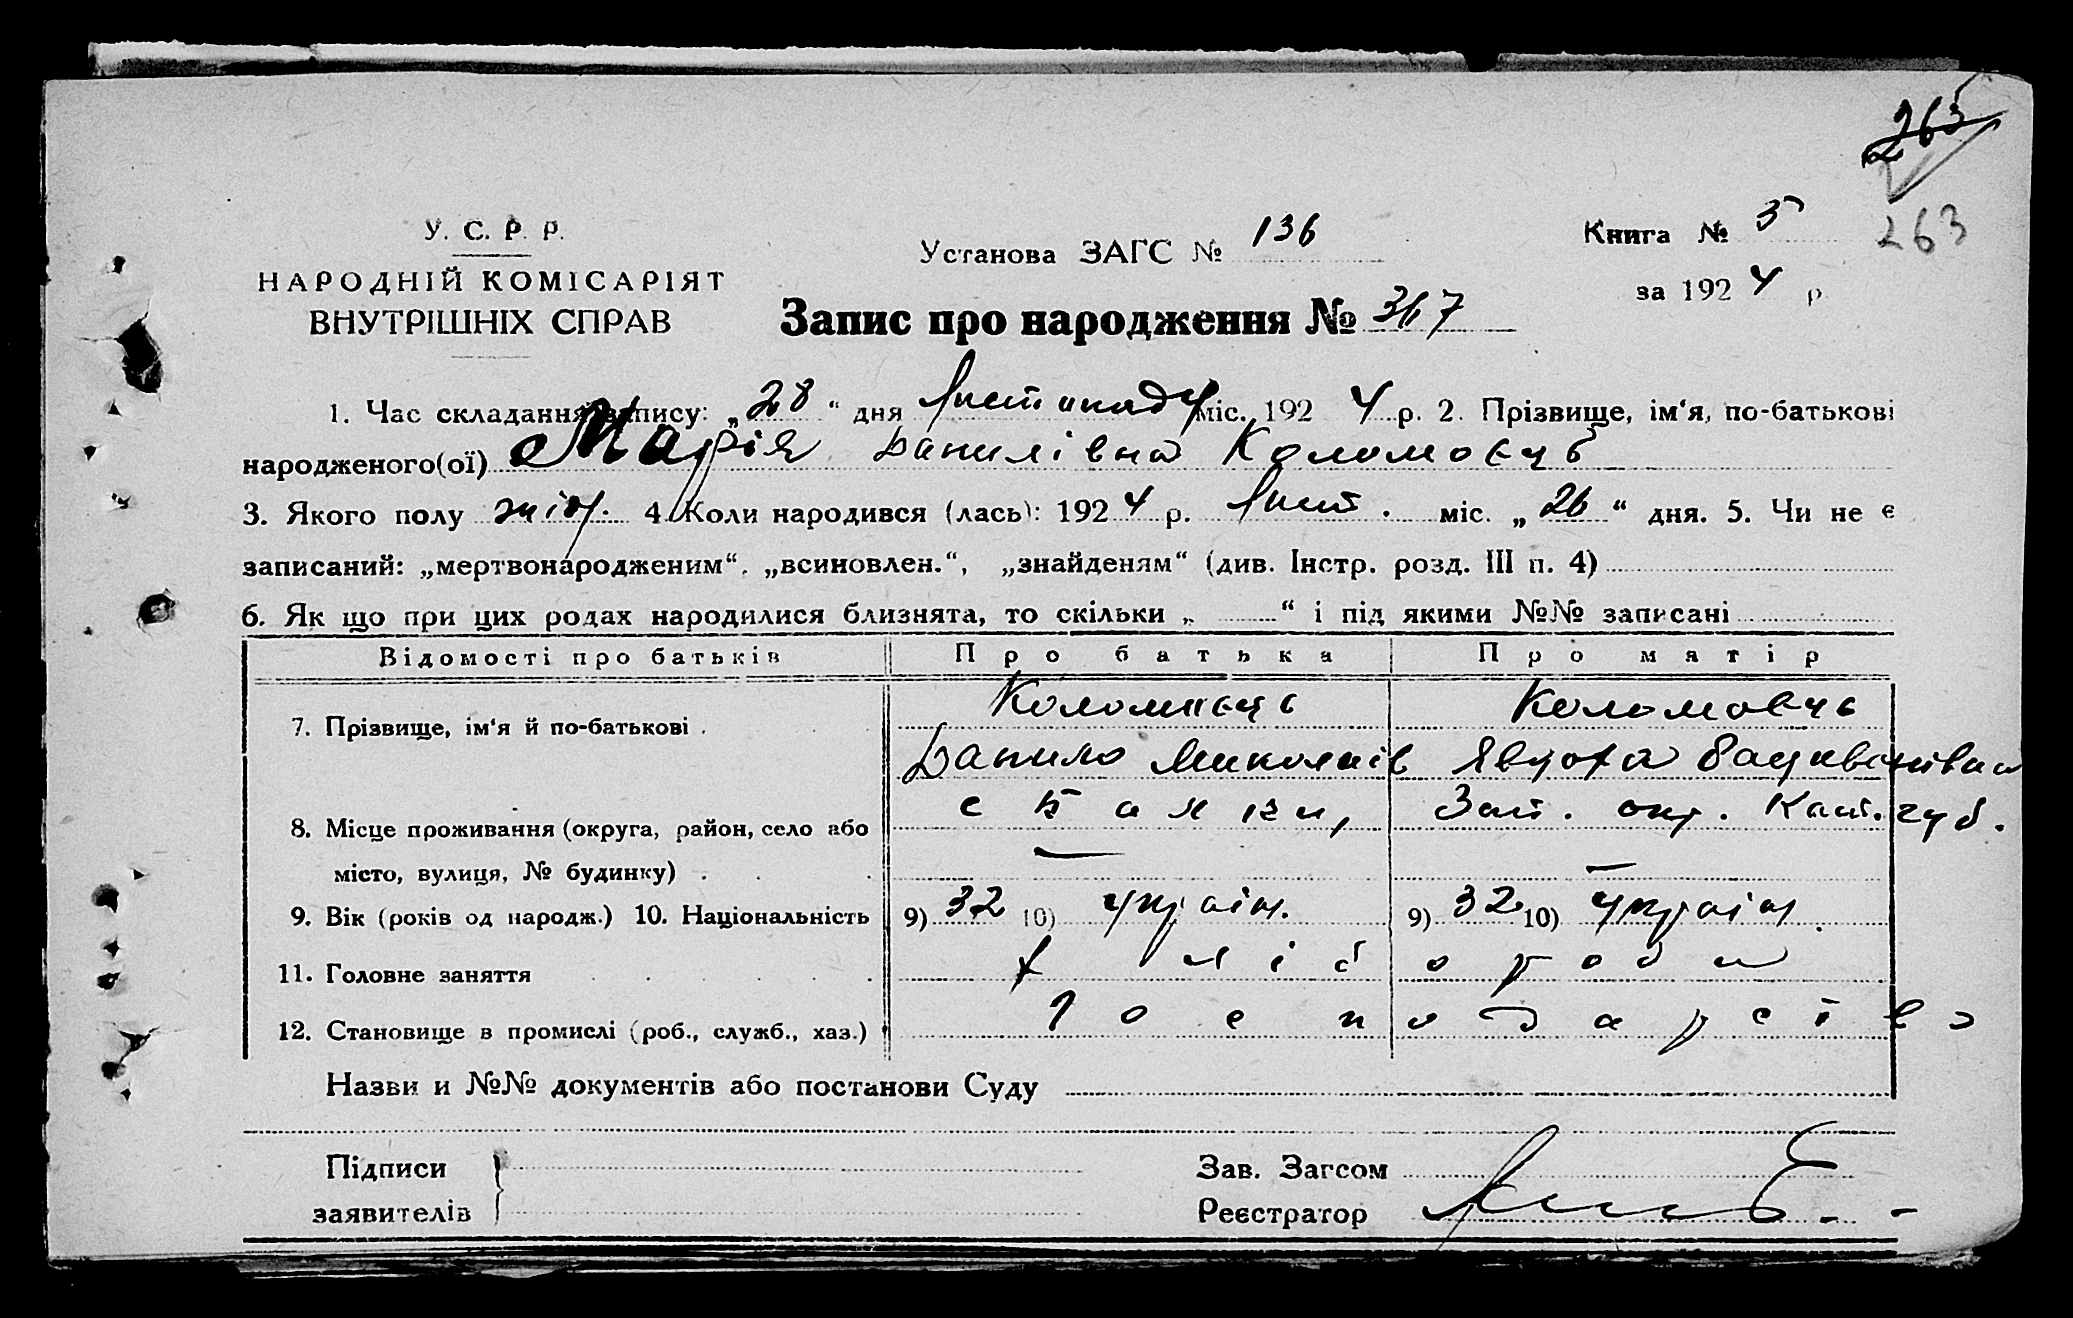 263
263
У. С. Р. Р.
НАРОДНІЙ КОМІСАРІЯТ
ВНУТРІШНІХ СПРАВ
Установа ЗАГС № 136
Книга № 5
за 1924 р
Запис про народження № 367
1. Час складання запису: „28“ дня Листопаду міс. 1924 р. 2. Прізвище, ім‘я, по-батькові
народженого(ої) Марія Данилівна
3. Якого полу жін. 4. Коли народився (лась): 1924 р. Лист. міс. „26“ дня. 5. Чи не є
записаний: „мертвонародженим“, „всиновлен.“, „знайденям“ (див. Інстр. розд. III п. 4)
6. Як що при цих родах народилися близнята, то скільки „ “ і під якими №№ записані
Відомості про батьків Про батька Про матір
7. Прізвище, ім‘я й по-батькові .
Данило
8. Місце проживання (округа, район, село або
місто, вулиця, № будинку) . . .
с окр. губ.
9. Вік (років од народж.) 10. Національність 9) 32 10) україн. 9) 32 10) україн
11. Головне заняття . . . хлібороби
12. Становище в промислі (роб., служб., хаз.) господарство
Назви и №№ документів або постанови Суду
Підписи
заявителів
Зав. Загсом
Реєстратор